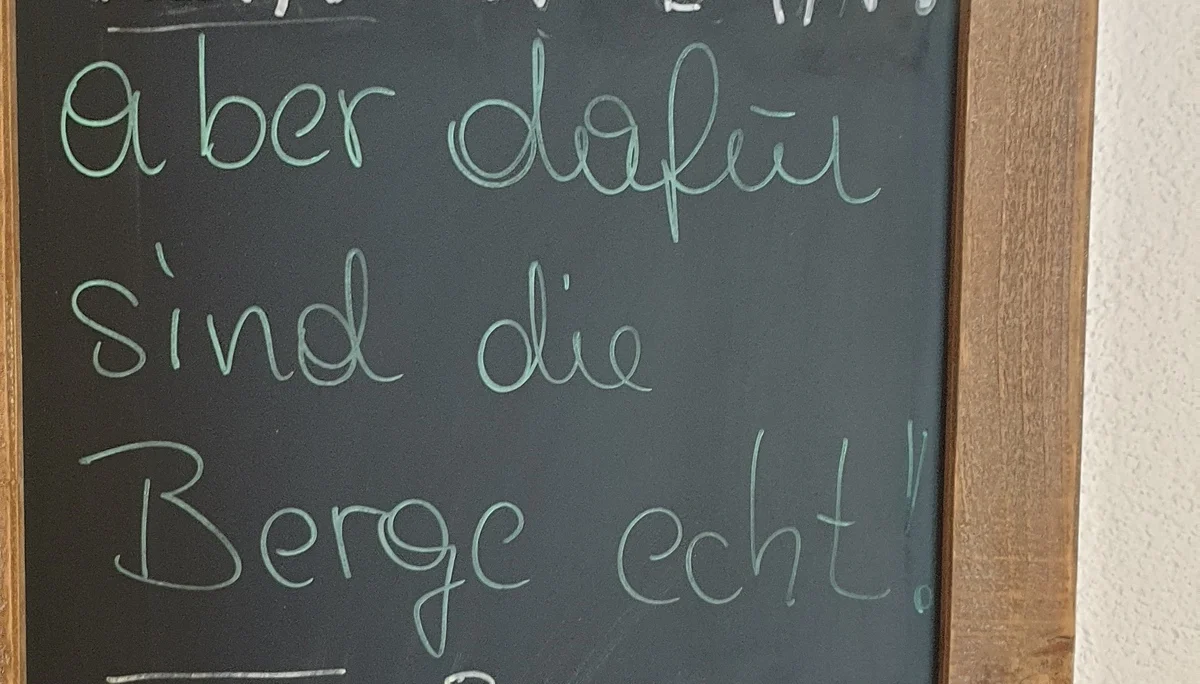 aber dafür
sind die
Berge echt!